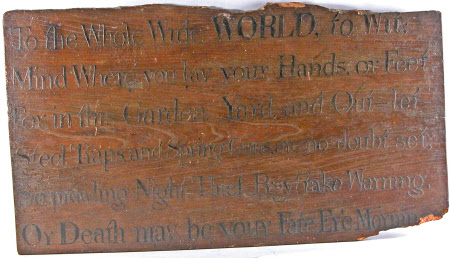 To the Whole Wide WORLD, to Wit,
Mind Where you lay your Hands, or Feet
For in this Garden, Yard, and Out-let
Steel Traps and Spring Guns are no doubt set,
So prowling Night Thief, Pray take Warning,
Or Death may be your Fate E're Morning